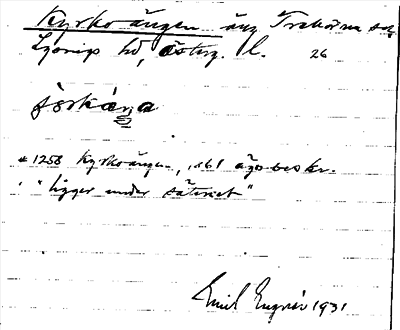 Kyrkoängen äng Trehörna sn,
Lysings hd, Österg. l. 26
*1258 Kyrkoängen, 1861 ägobeskr.
"ligger under säteriet"
Emil 1931